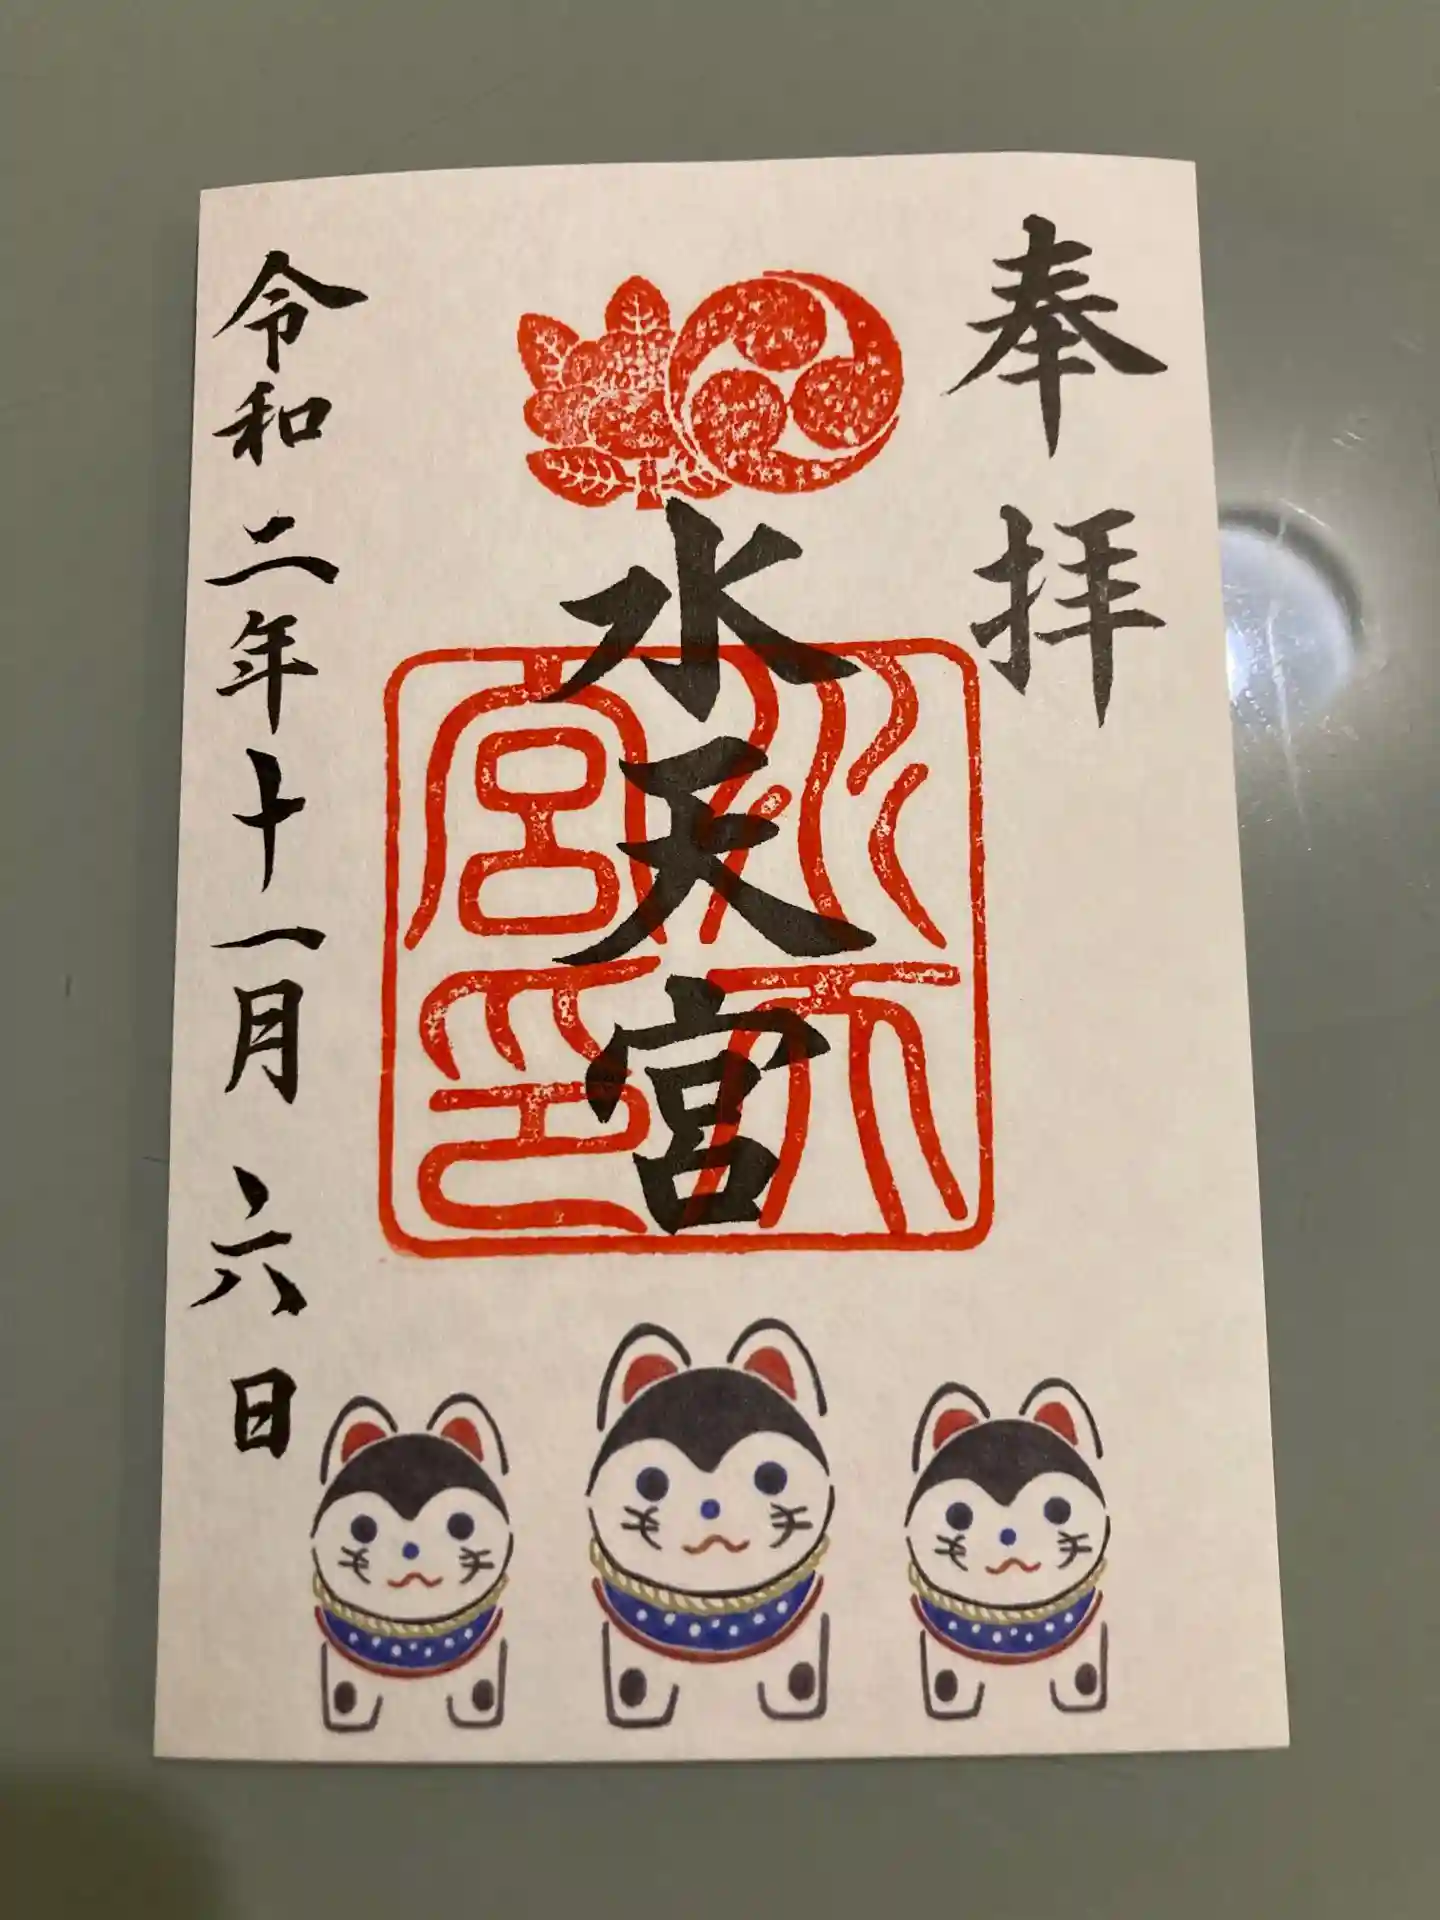 奉拝
水天宮
水天宮印
令和二年十一月六日